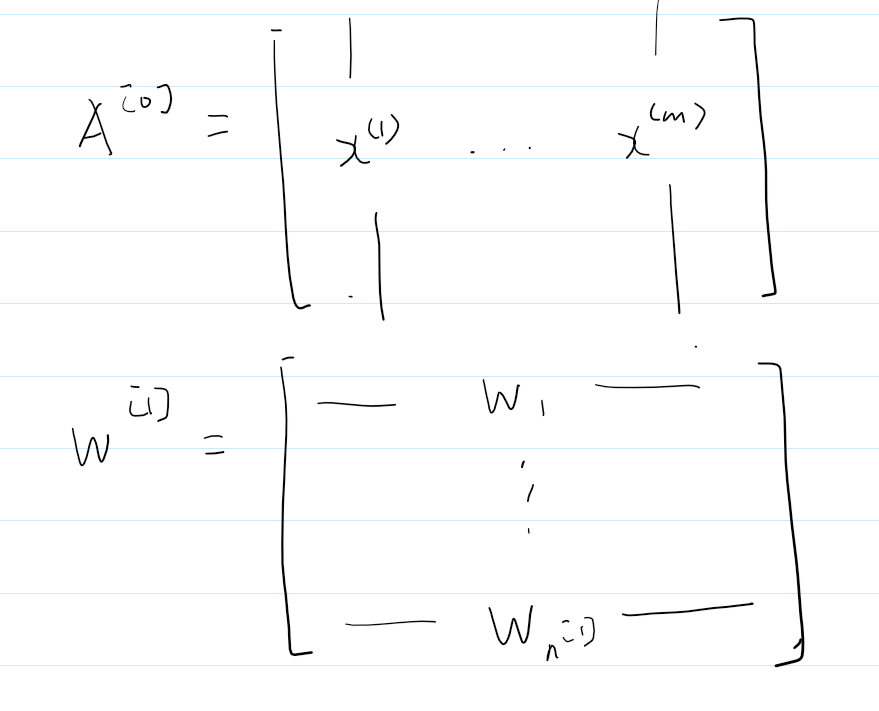 A^[0] = [ x^(1) ... x^(m) ]
W^[1] = [ — W_1 —
⋮
— W_n^[1] — ]